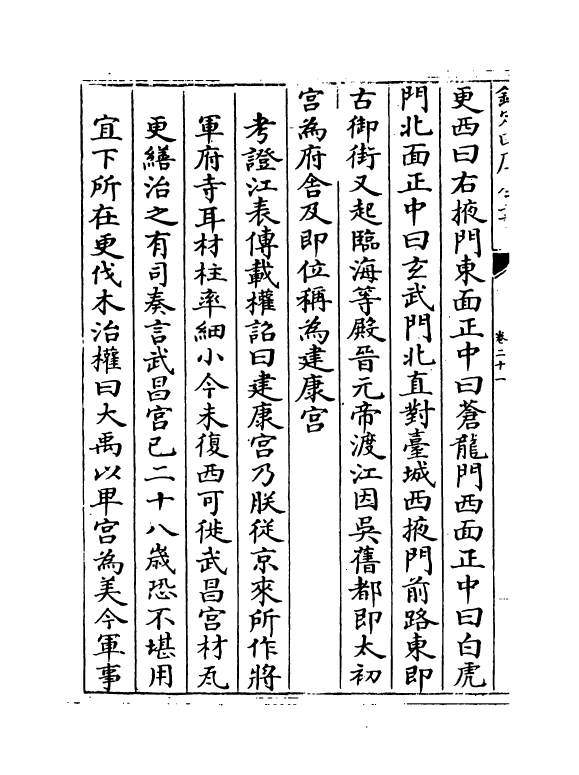 更西曰右掖門東面正中曰蒼龍門西面正中曰白虎
門北面正中曰玄武門北直對臺城西掖門前路東即
古御街又起臨海等殿晉元帝渡江因吳舊都即太初
宮為府舍及即位稱為建康宮
考證江表傳載權詔曰建康宮乃朕從京來所作將
軍府寺耳材柱率細小今未復西可徙武昌宮材瓦
更繕治之有司奏言武昌宮已二十八歲恐不堪用
宜下所在更伐木治權曰大禹以卑宮為美今軍事
卷二十一